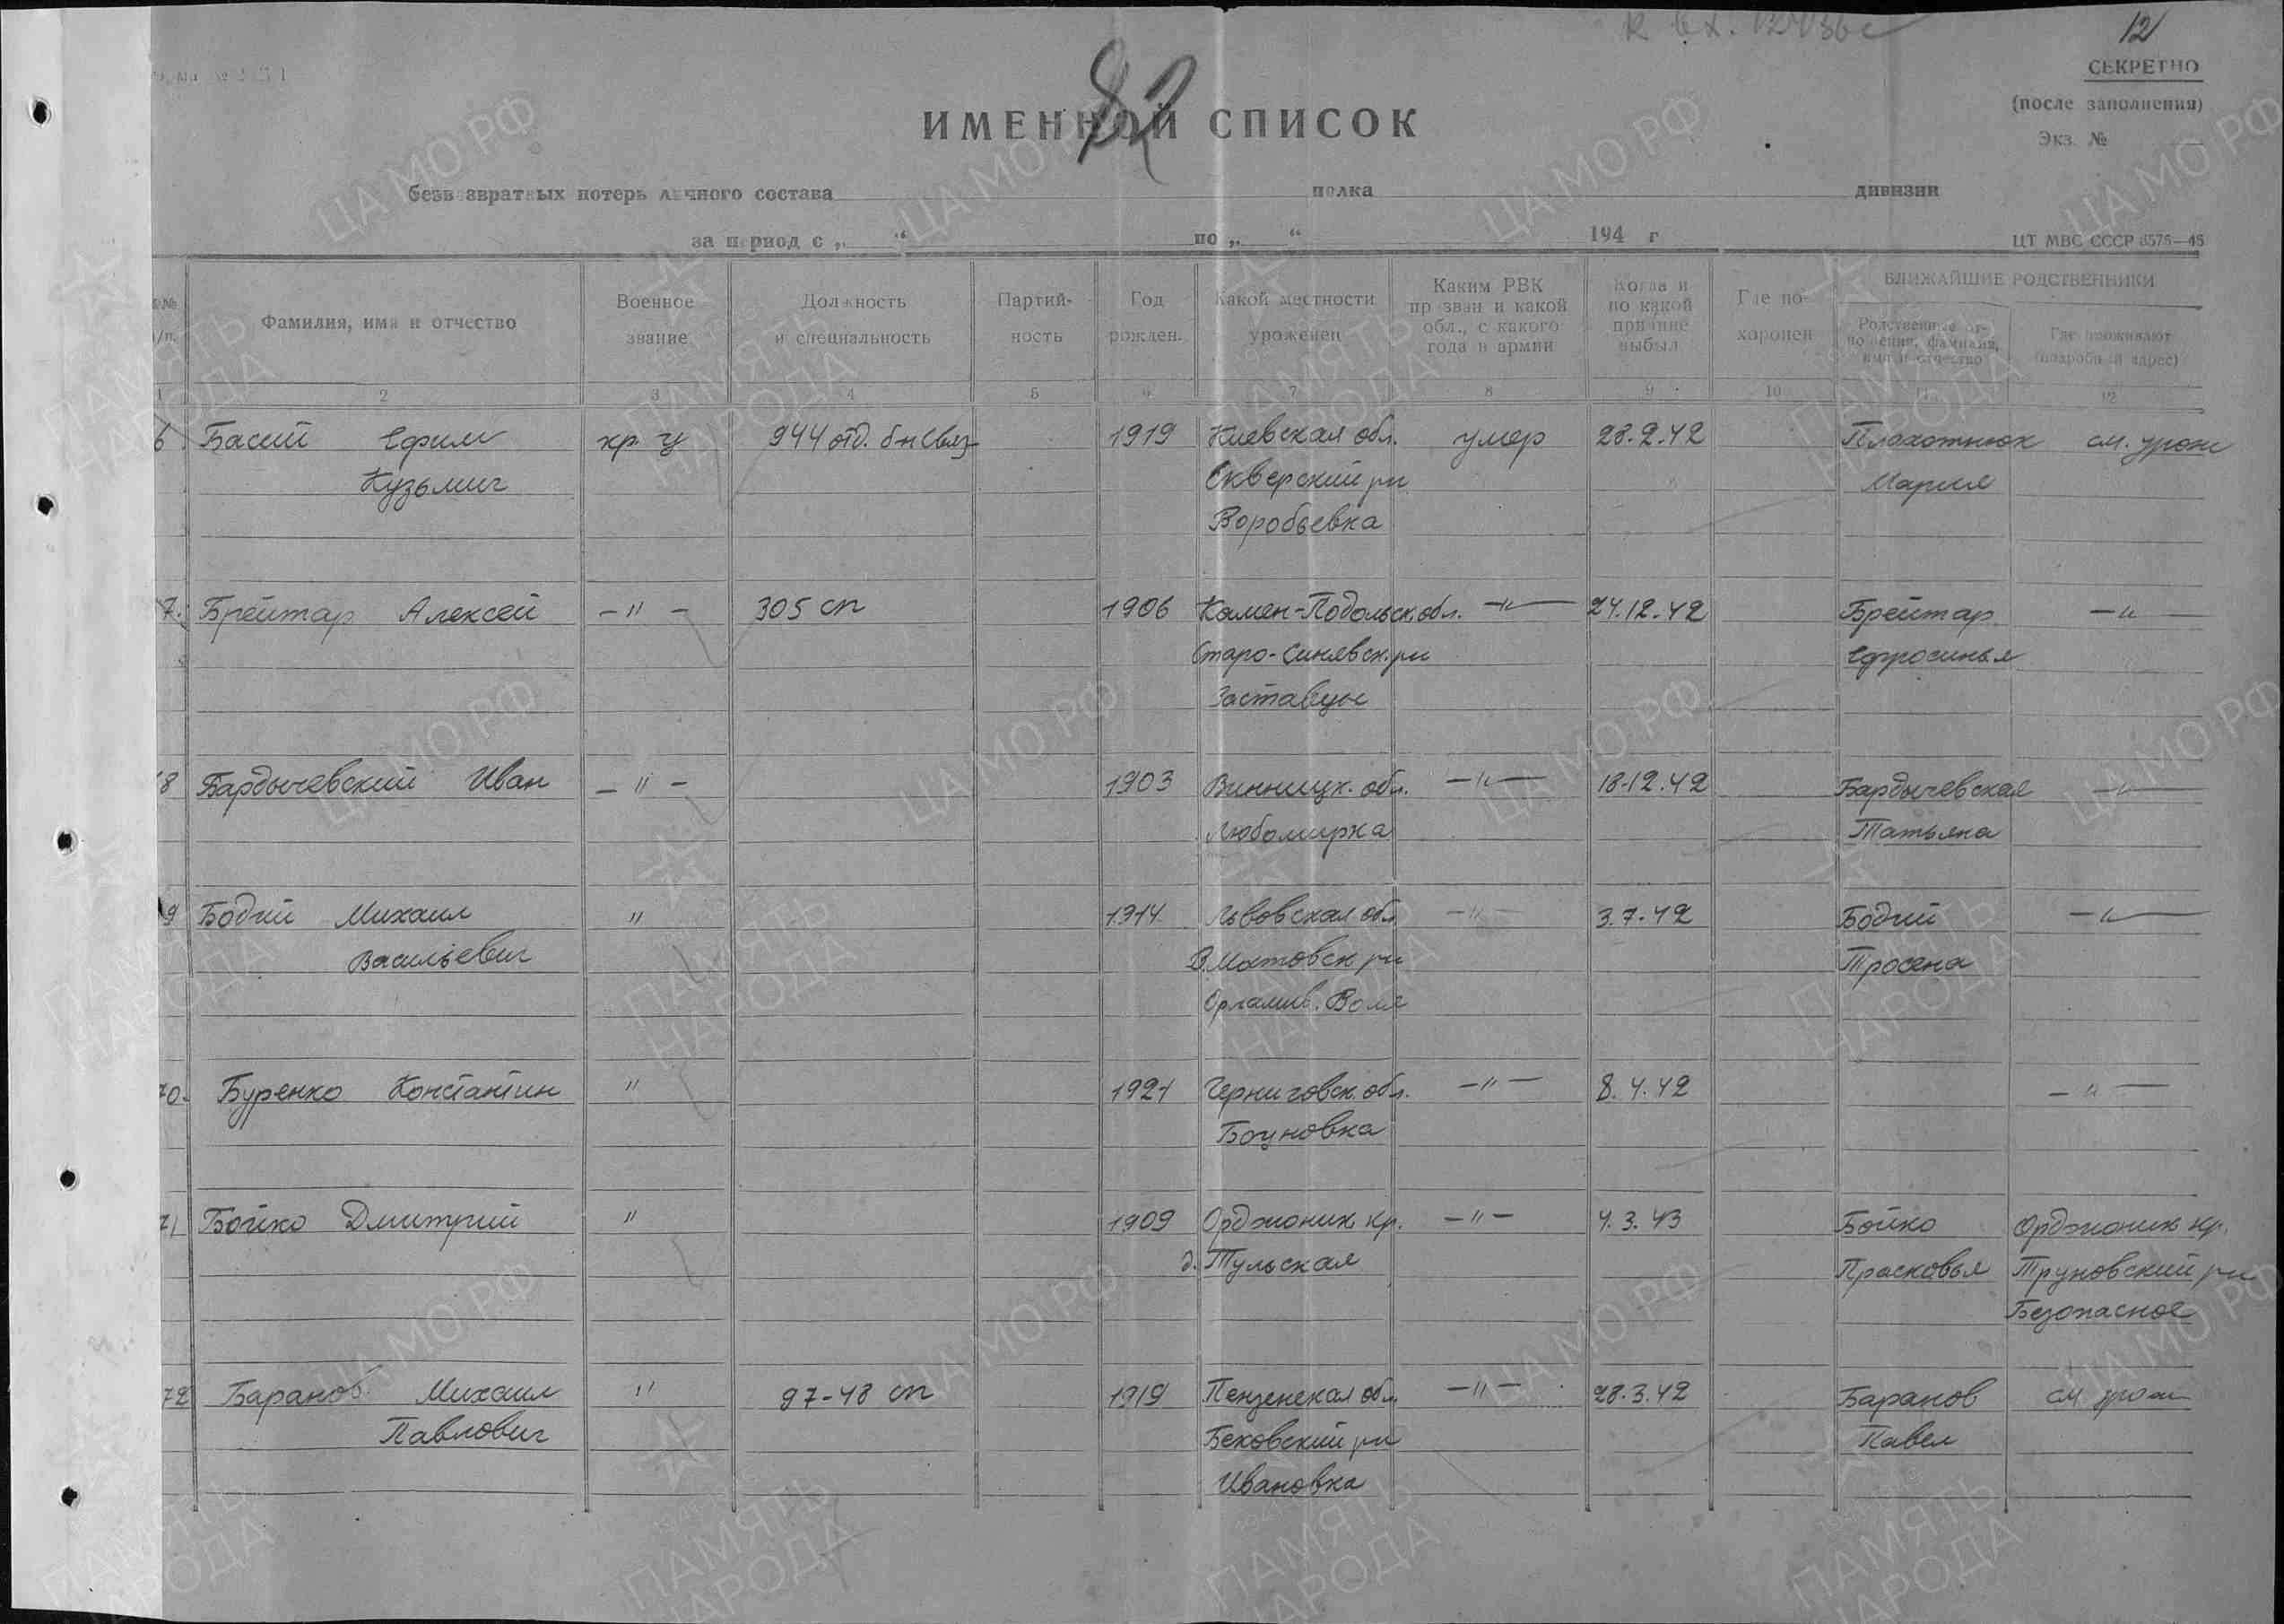 12
СЕКРЕТНО
(после заполнения)
Экз. №
82
ИМЕННОЙ СПИСОК
безвозвратных потерь личного состава полка дивизии
за период с „ “ по „ “ 194 г
ЦТ МВС СССР
№№ п/п. Фамилия, имя и отчество Военное звание Должность и специальность Партийность Год рожден. Какой местности уроженец Каким РВК призван и какой обл., с какого года в армии Когда и по какой причине выбыл Где похоронен БЛИЖАЙШИЕ РОДСТВЕННИКИ
Родственные отношения, фамилия, имя и отчество Где проживают (подробный адрес)
1 2 3 4 5 6 7 8 9 10 11 12
6 Басий Ефим кр-ц 944 отд. б-н связ 1919 Киевская обл. умер 28.2.42 Плахотнюк см. урож
Кузьмич Сквирский рн Мария
Воробьевка
7. Брейтар Алексей —"— 305 сп 1906 Камен-Подольск. обл. —"— 24.12.42 Брейтар —"—
Старо-Синявск. рн Ефросинья
Заставцы
8 Бардычевский Иван —"— 1903 Винницк. обл. —"— 18.12.42 Бардычевская —"—
Любомирка Татьяна
9 Бодий Михаил " 1914 Львовская обл —"— 3.7.42 Бодий —"—
Васильевич рн
Воля
70. Буренко Константин " 1921 Черниговск. обл. —"— 8.4.42 —"—
71 Бойко Дмитрий " 1909 Орджоник. кр. —"— 4.3.43 Бойко Орджоник кр.
д. Тульская Прасковья Труновский рн
Безопасное
72 Баранов Михаил " 97-48 сп 1919 Пензенская обл. —"— 28.3.42 Баранов см. урож
Павлович Бековский рн Павел
Ивановка
ЦА МО РФ
ПАМЯТЬ НАРОДА